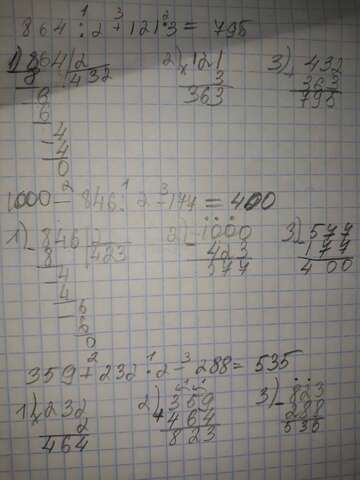 864 : 2 + 121 · 3 = 795
1) 864 | 2
8 | 432
6
6
4
4
0
2) 121
× 3
363
3) 432
+ 363
795
1000 - 846 : 2 - 177 = 400
1) 846 | 2
8 | 423
4
4
6
6
0
2) 1000
- 423
577
3) 577
- 177
400
359 + 232 · 2 - 288 = 535
1) 232
× 2
464
2) 359
+ 464
823
3) 823
- 288
535